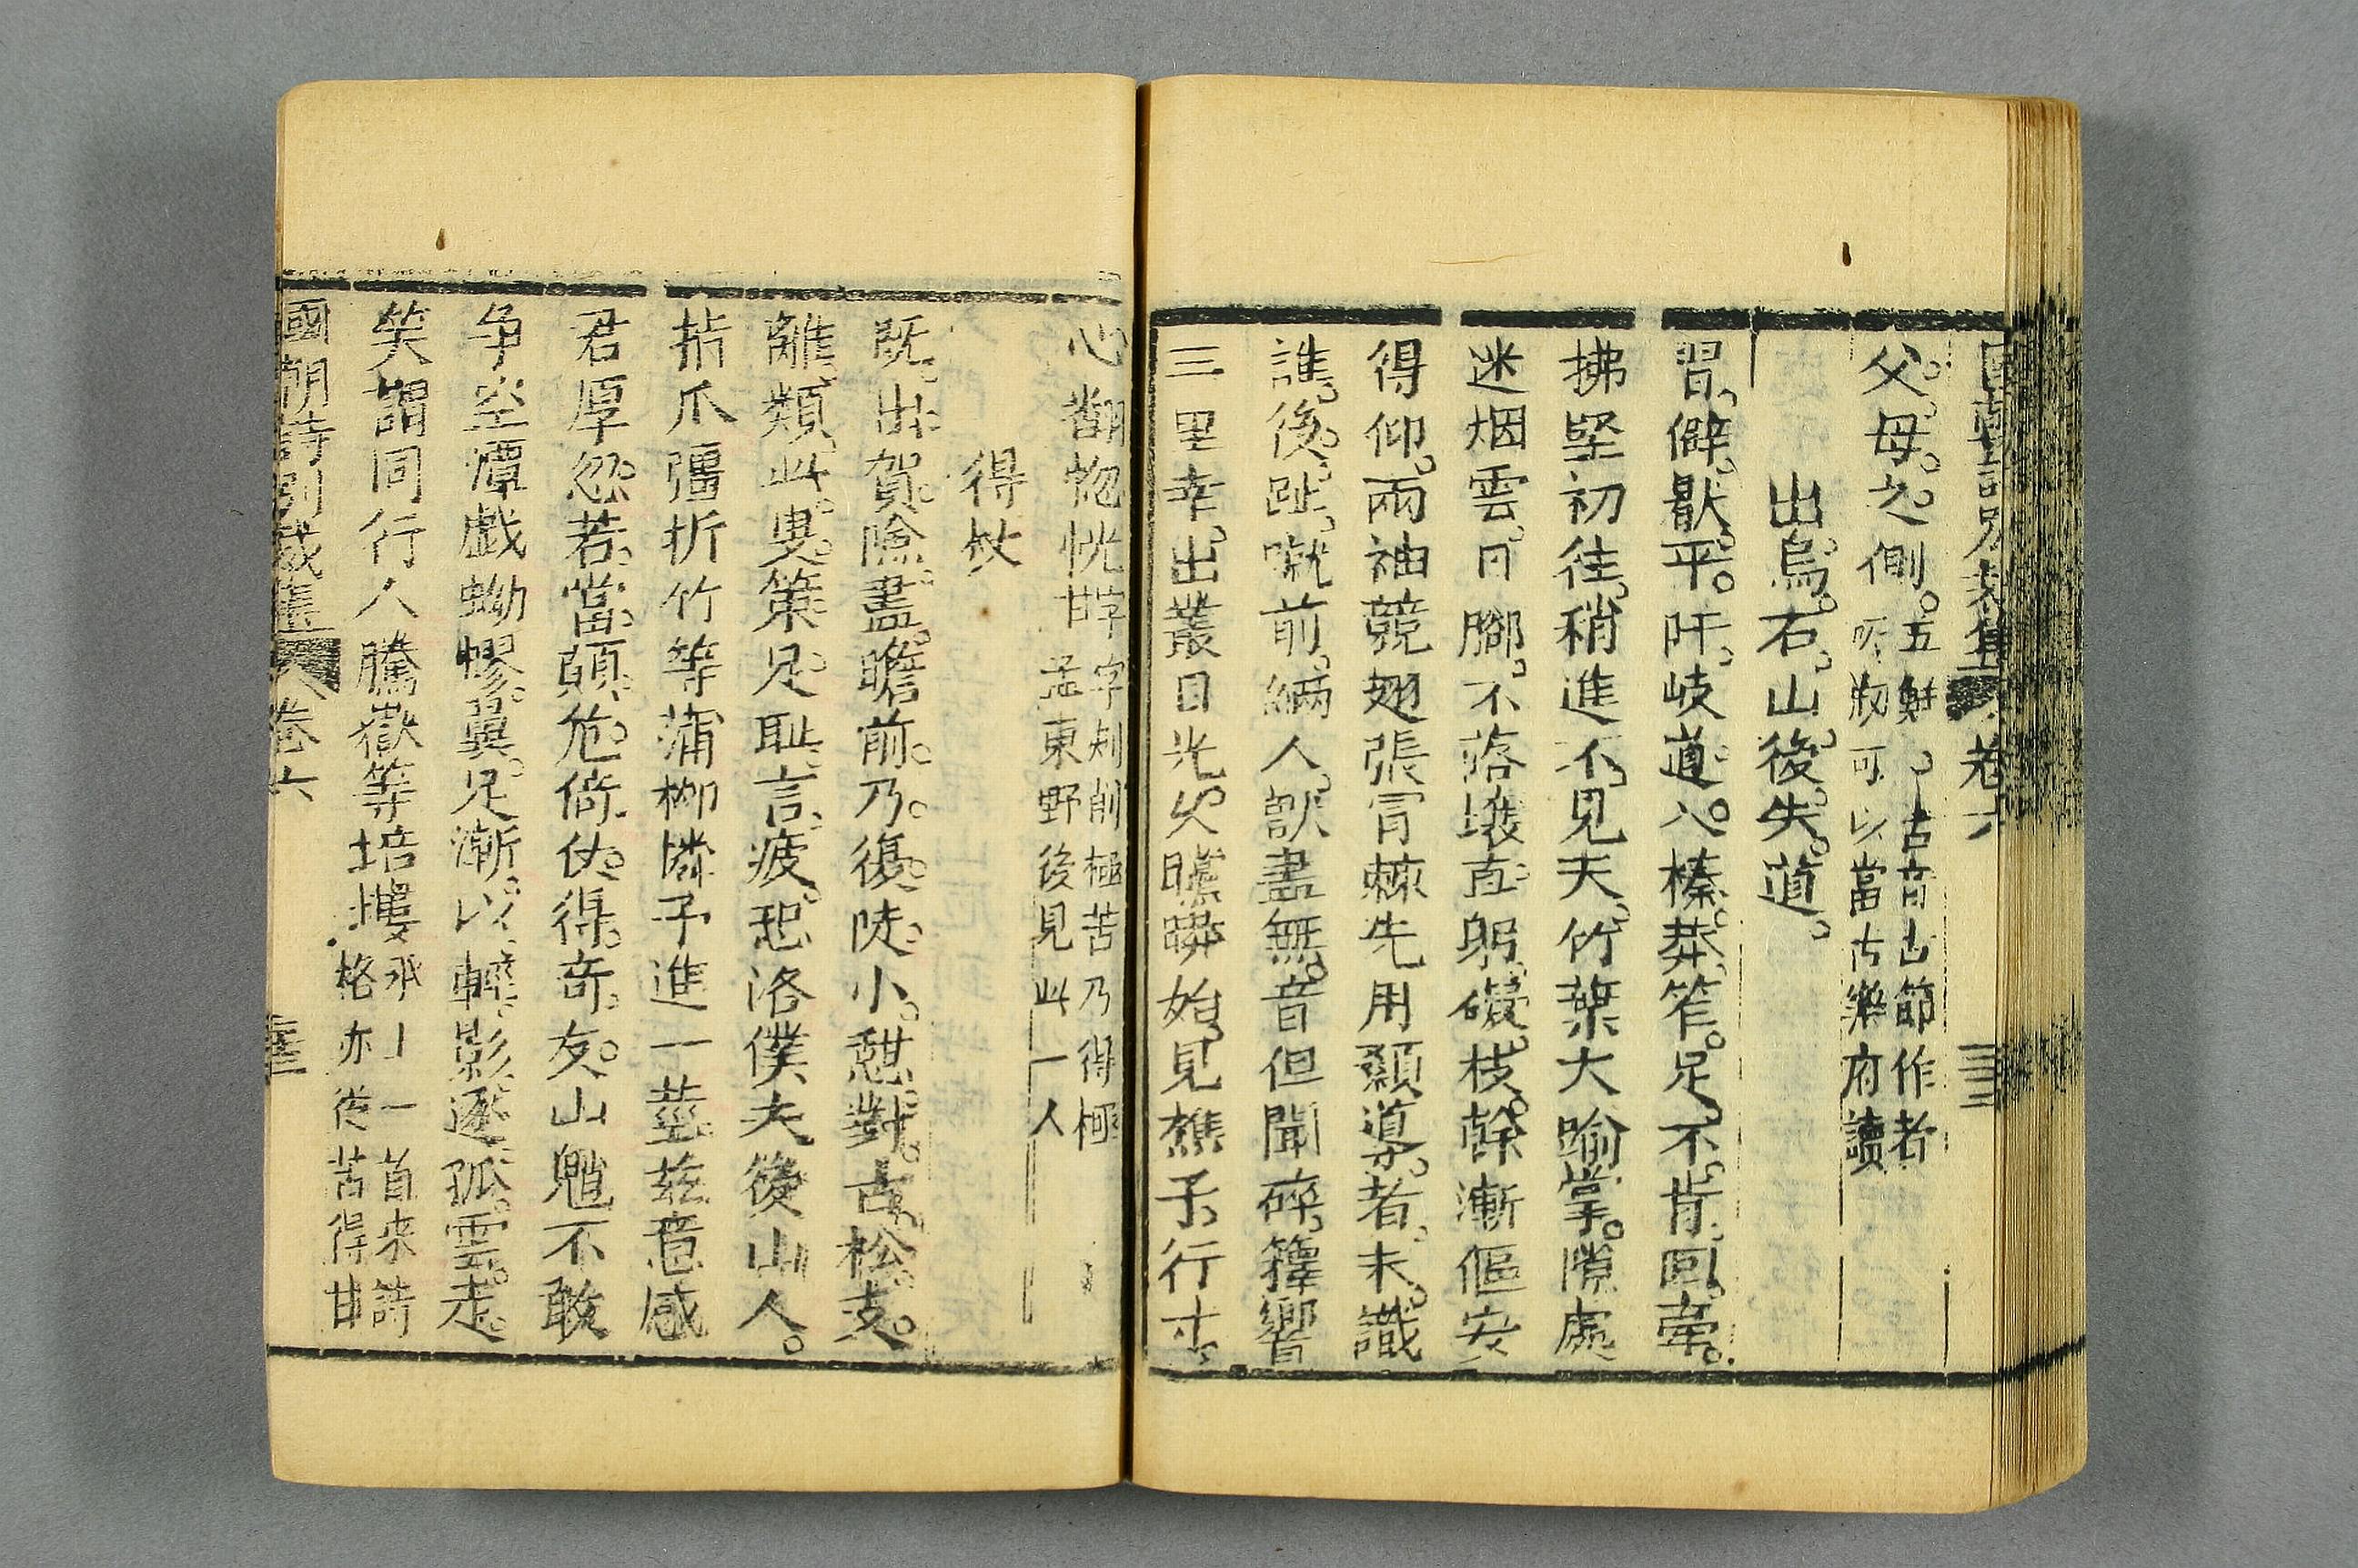 國朝詩別裁集 卷六
父母之側 五解 古音古節作者
所剏可以當古樂府讀
出烏石山後失道
習僻猒平阡岐道入榛莽笮足不肯回牽
拂堅初往稍進不見天竹葉大踰掌隙處
迷烟雲日腳不落壤直躬礙枝榦漸傴安
得仰兩袖競翅張冐棘先用顙導者未識
誰後趾前緉人獸盡無音但聞碎籜響
三里幸出叢日光久始見樵子行寸
心翻惚恍 字字刻削極苦乃得極
甘孟東野後見此一人
得杖
既出賀險盡瞻前乃復陡小憇對古松支
離類此叟策足耻言疲恐洛僕夫後山人
拈爪彊折竹等蒲栁憐予進一莖兹意感
君厚忽若當顛危倚仗得奇友山魈不敢
争空潭戯蚴蟉翼足漸以輕影逐孤雲走
笑謂同行人騰嶽等培塿 承上一首来詩
格亦從苦得甘
國朝詩別裁集 卷六